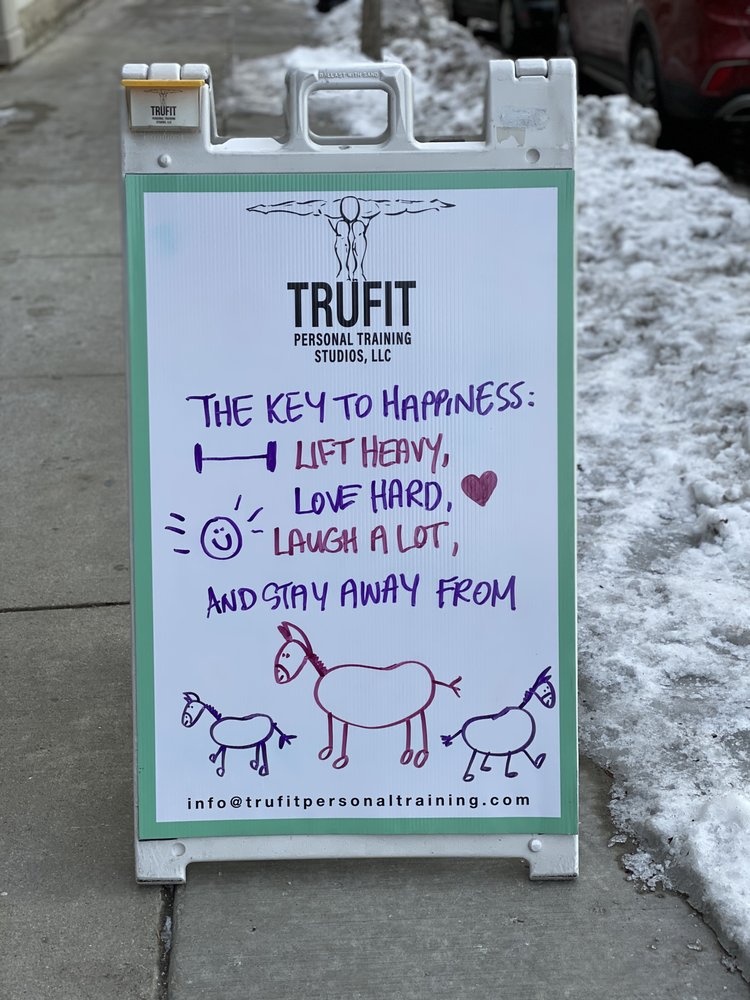 BALLAST WITH SAND
TRUFIT
PERSONAL TRAINING
STUDIOS, LLC
TRUFIT
PERSONAL TRAINING
STUDIOS, LLC
THE KEY TO HAPPINESS:
LIFT HEAVY,
LOVE HARD,
LAUGH A LOT,
AND STAY AWAY FROM
info@trufitpersonaltraining.com